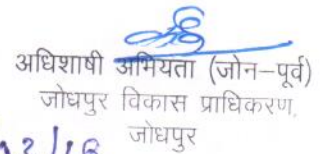 अधिशाषी अभियता (जोन-पूर्व)
जोधपुर विकास प्राधिकरण,
जोधपुर